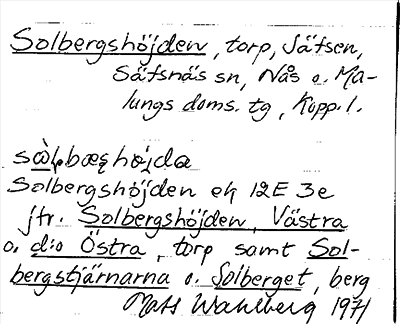 Solbergshöjden, torp, Säfsen,
Säfsnäs sn, Nås o. Ma-
lungs doms. tg, Kopp. l.
sὼl̥bæʂhöjda
Solbergshöjden ek 12E 3e
jfr. Solbergshöjden, Västra
o. d:o Östra, torp samt Sol-
bergstjärnarna o. Solberget, berg
Mats Wahlberg 1971